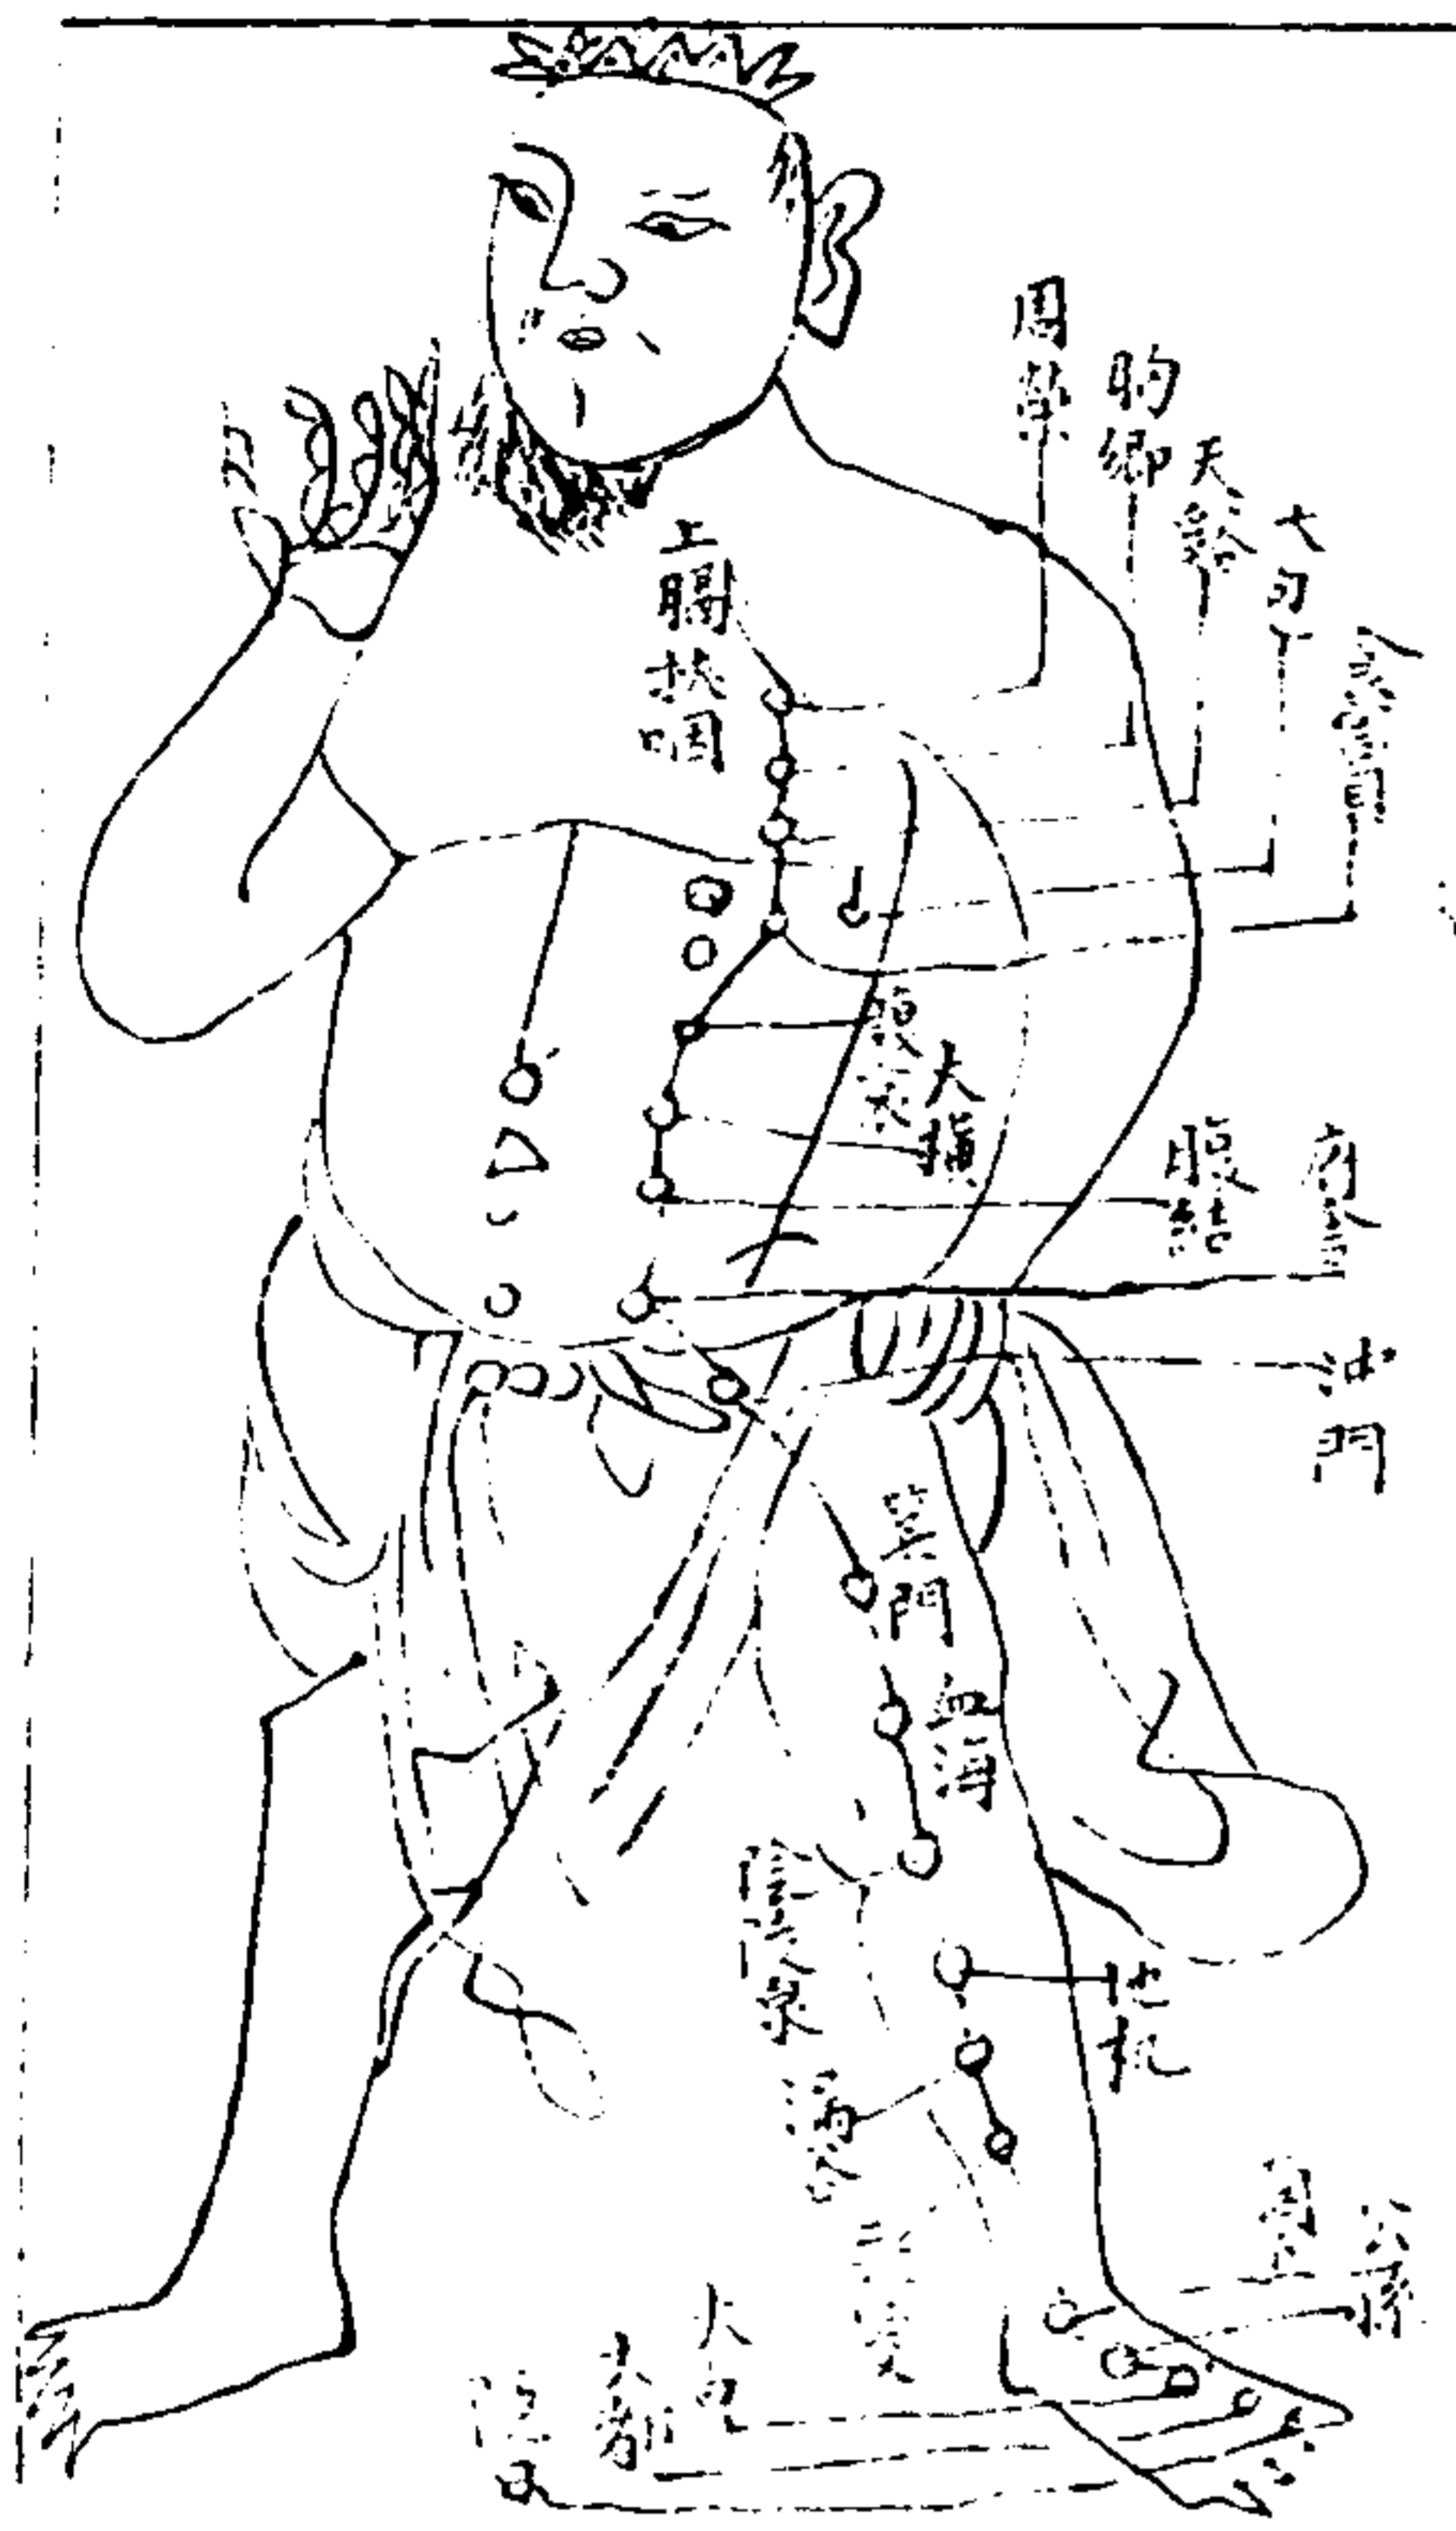 周榮
胸鄉
天谿
大包
食竇
上膈挾咽
腹哀
大橫
腹結
府舍
冲門
箕門
血海
陰陵泉
地机
漏谷
三陰交
商丘
公孫
太白
大都
隱白